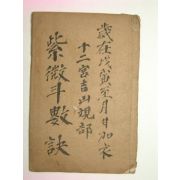 歲在戊寅至月甘加衣
十二宮吉凶規部
紫微斗數訣